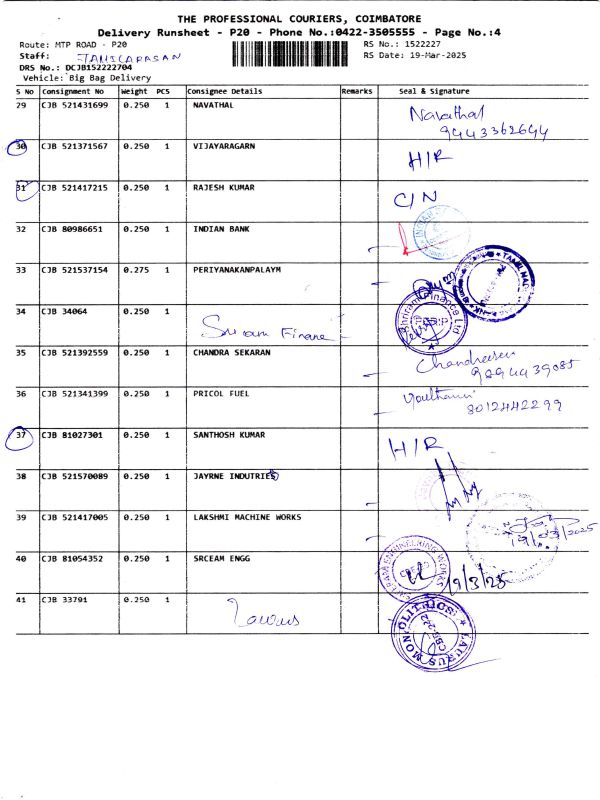 THE PROFESSIONAL COURIERS, COIMBATORE
Delivery Runsheet - P20 - Phone No.:0422-3505555 - Page No.:4
Route: MTP ROAD - P20 RS No.: 1522227
Staff: RS Date: 19-Mar-2025
DRS No.: DCJB152222704
Vehicle: Big Bag Delivery
S No Consignment No Weight PCS Consignee Details Remarks Seal & Signature
29 CJB 521431699 0.250 1 NAVATHAL Navathal
9443362644
30 CJB 521371567 0.250 1 VIJAYARAGARN H/R
31 CJB 521417215 0.250 1 RAJESH KUMAR C/N
32 CJB 80986651 0.250 1 INDIAN BANK
33 CJB 521537154 0.275 1 PERIYANAKANPALAYM
34 CJB 34064 0.250 1 Sriram Finance Shriram Finance Ltd
35 CJB 521392559 0.250 1 CHANDRA SEKARAN Chandreseen
9894439085
36 CJB 521341399 0.250 1 PRICOL FUEL
8012442299
37 CJB 81027301 0.250 1 SANTHOSH KUMAR H/R
38 CJB 521570089 0.250 1 JAYRNE INDUTRIES
39 CJB 521417005 0.250 1 LAKSHMI MACHINE WORKS 19/03/2025
40 CJB 81054352 0.250 1 SRCEAM ENGG ENGINEERING WORKS 19/3/25
41 CJB 33791 0.250 1 Laurus LAURUS MONOLITHICS